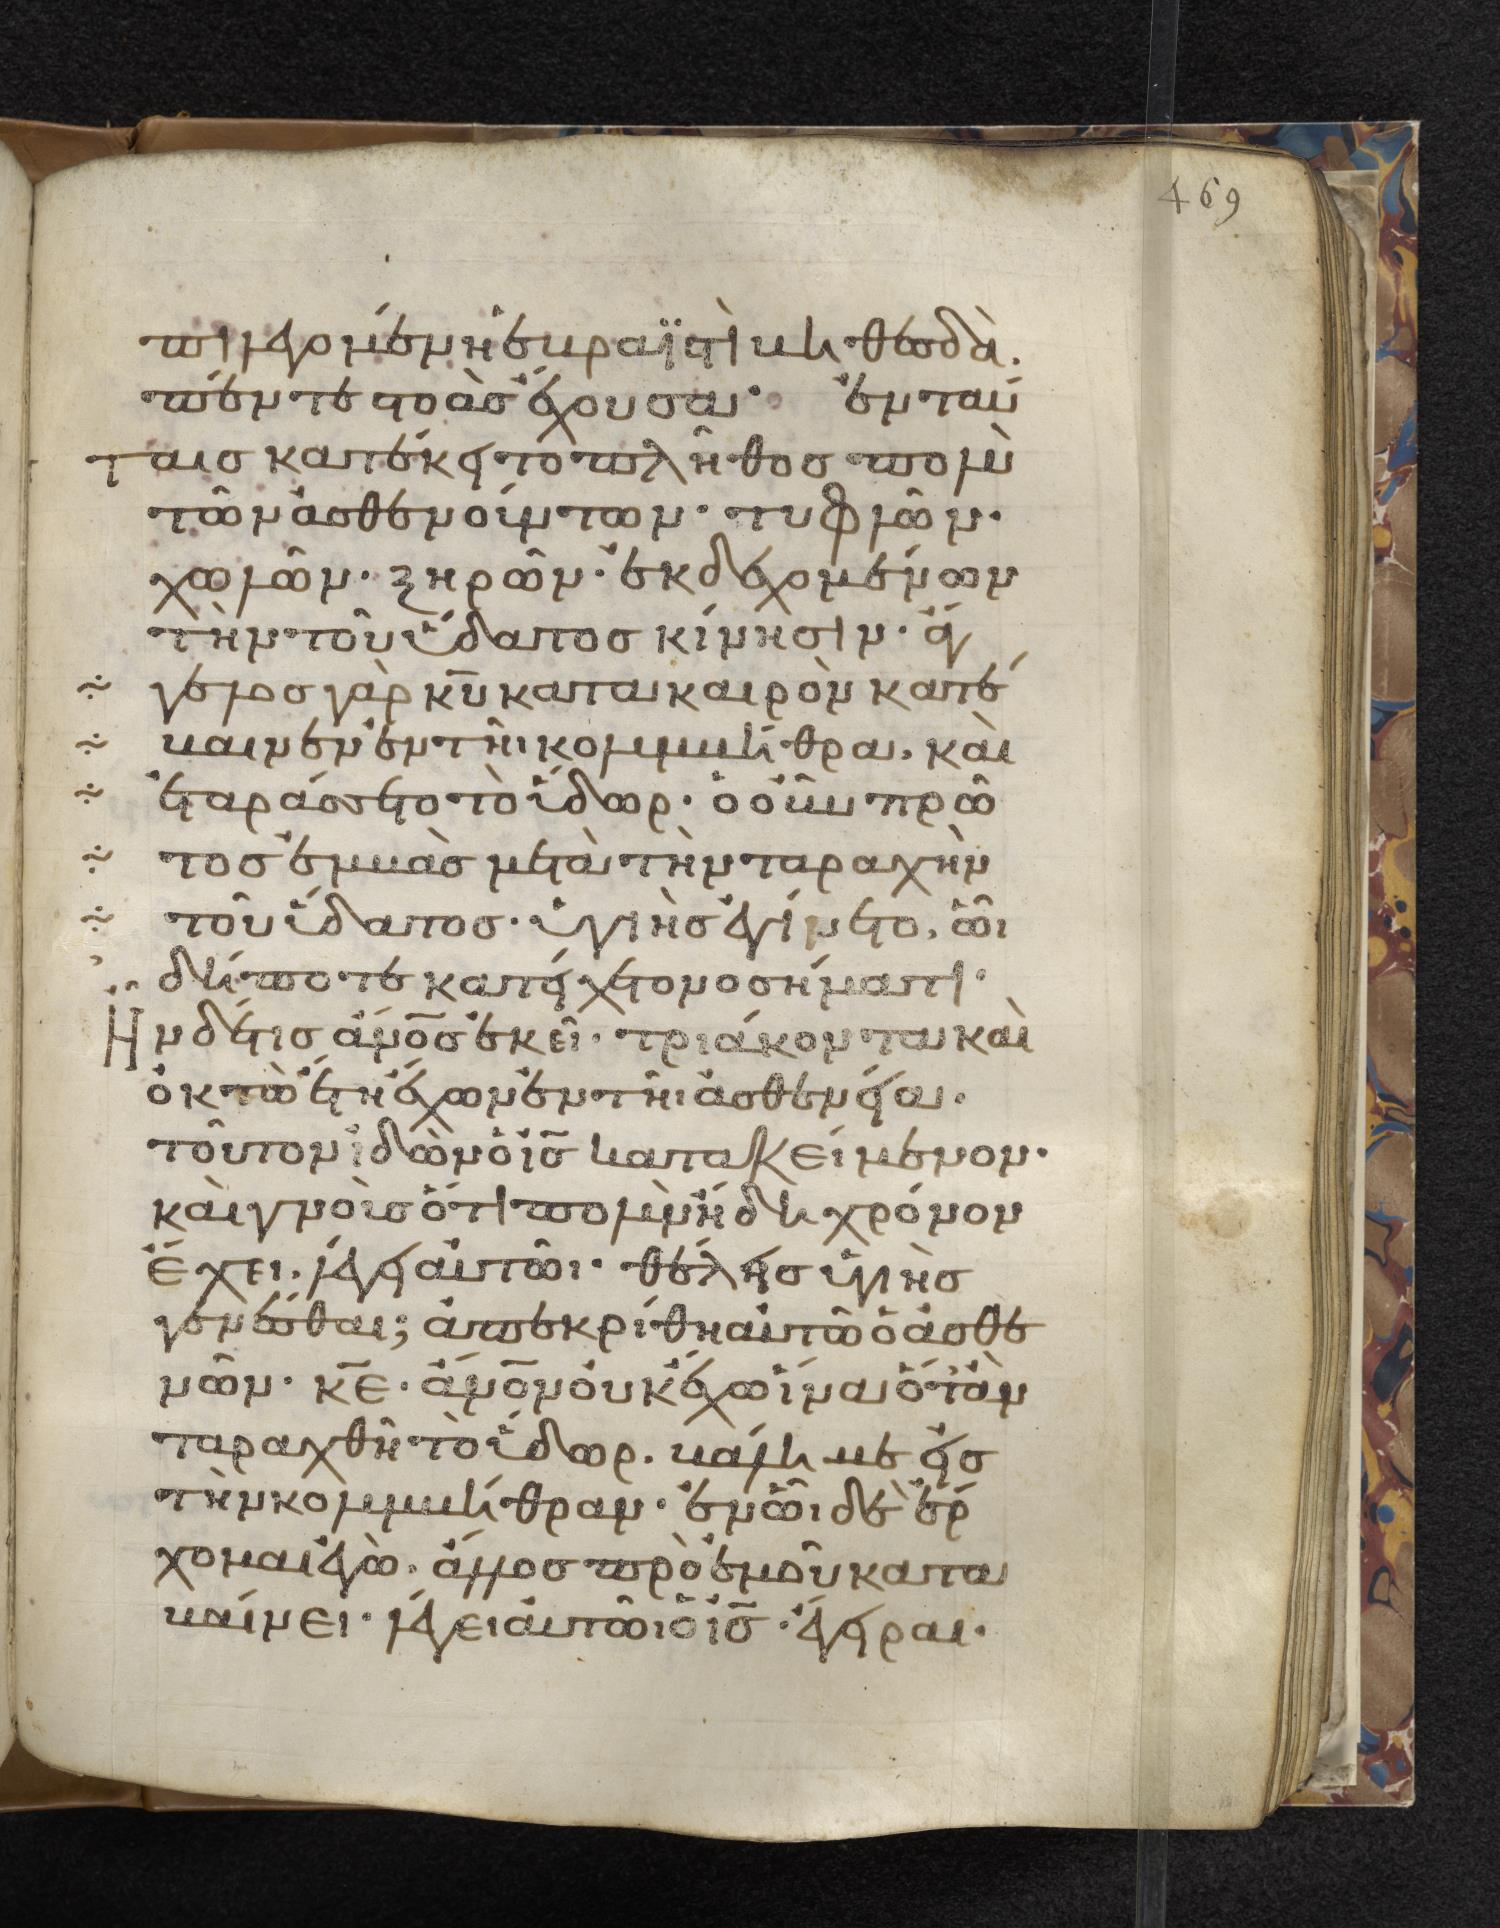 469
πιλεγομένη ἑβραϊστὶ βηθεσδὰ.
πέντε στοὰς ἔχουσα· ἐν ταύ
ταις κατέκειτο πλῆθος πολὺ
τῶν ἀσθενούντων· τυφλῶν·
χωλῶν· ξηρῶν· ἐκδεχομένων
τὴν τοῦ ὕδατος κίνησιν· ἄγ
γελος γὰρ κ̅υ̅ κατα καιρὸν κατέ
βαινεν ἐν τῆι κολυμβήθρα, καὶ
ἐταράσσετο τὸ ὕδωρ· ὁ οὖν πρῶ
τος ἐμβὰς μετὰ τὴν ταραχὴν
τοῦ ὕδατος· ὑγιὴς ἐγίνετο, ὧι
δήποτε κατείχετο νοσήματι·
Ἦν δέ τις ἄν̅ο̅ς̅ ἐκεῖ· τριάκοντα καὶ
ὀκτὼ ἔτη ἔχων ἐν τῆι ἀσθενεία.
τοῦτον ἰδὼν ὁ ι̅ς̅ κατακείμενον·
καὶ γνοὺς ὅτι πολὺν ἤδη χρόνον
ἔχει, λέγει αὐτῶι· θέλεις ὑγιὴς
γενέσθαι; ἀπεκρίθη αὐτῶ ὁ ἀσθε
νῶν· κ̅ε̅· ἄν̅ο̅ν̅ οὐκ ἔχω ἵνα ὅταν
ταραχθῆ τὸ ὕδωρ. βάλη με εἰς
τὴν κολυμβήθραν· ἐν ὧι δὲ ἔρ
χομαι ἐγὼ, ἄλλος πρὸ ἐμοῦ κατα
βαίνει· λέγει αὐτῶι ὁ ι̅ς̅· ἔγειραι·